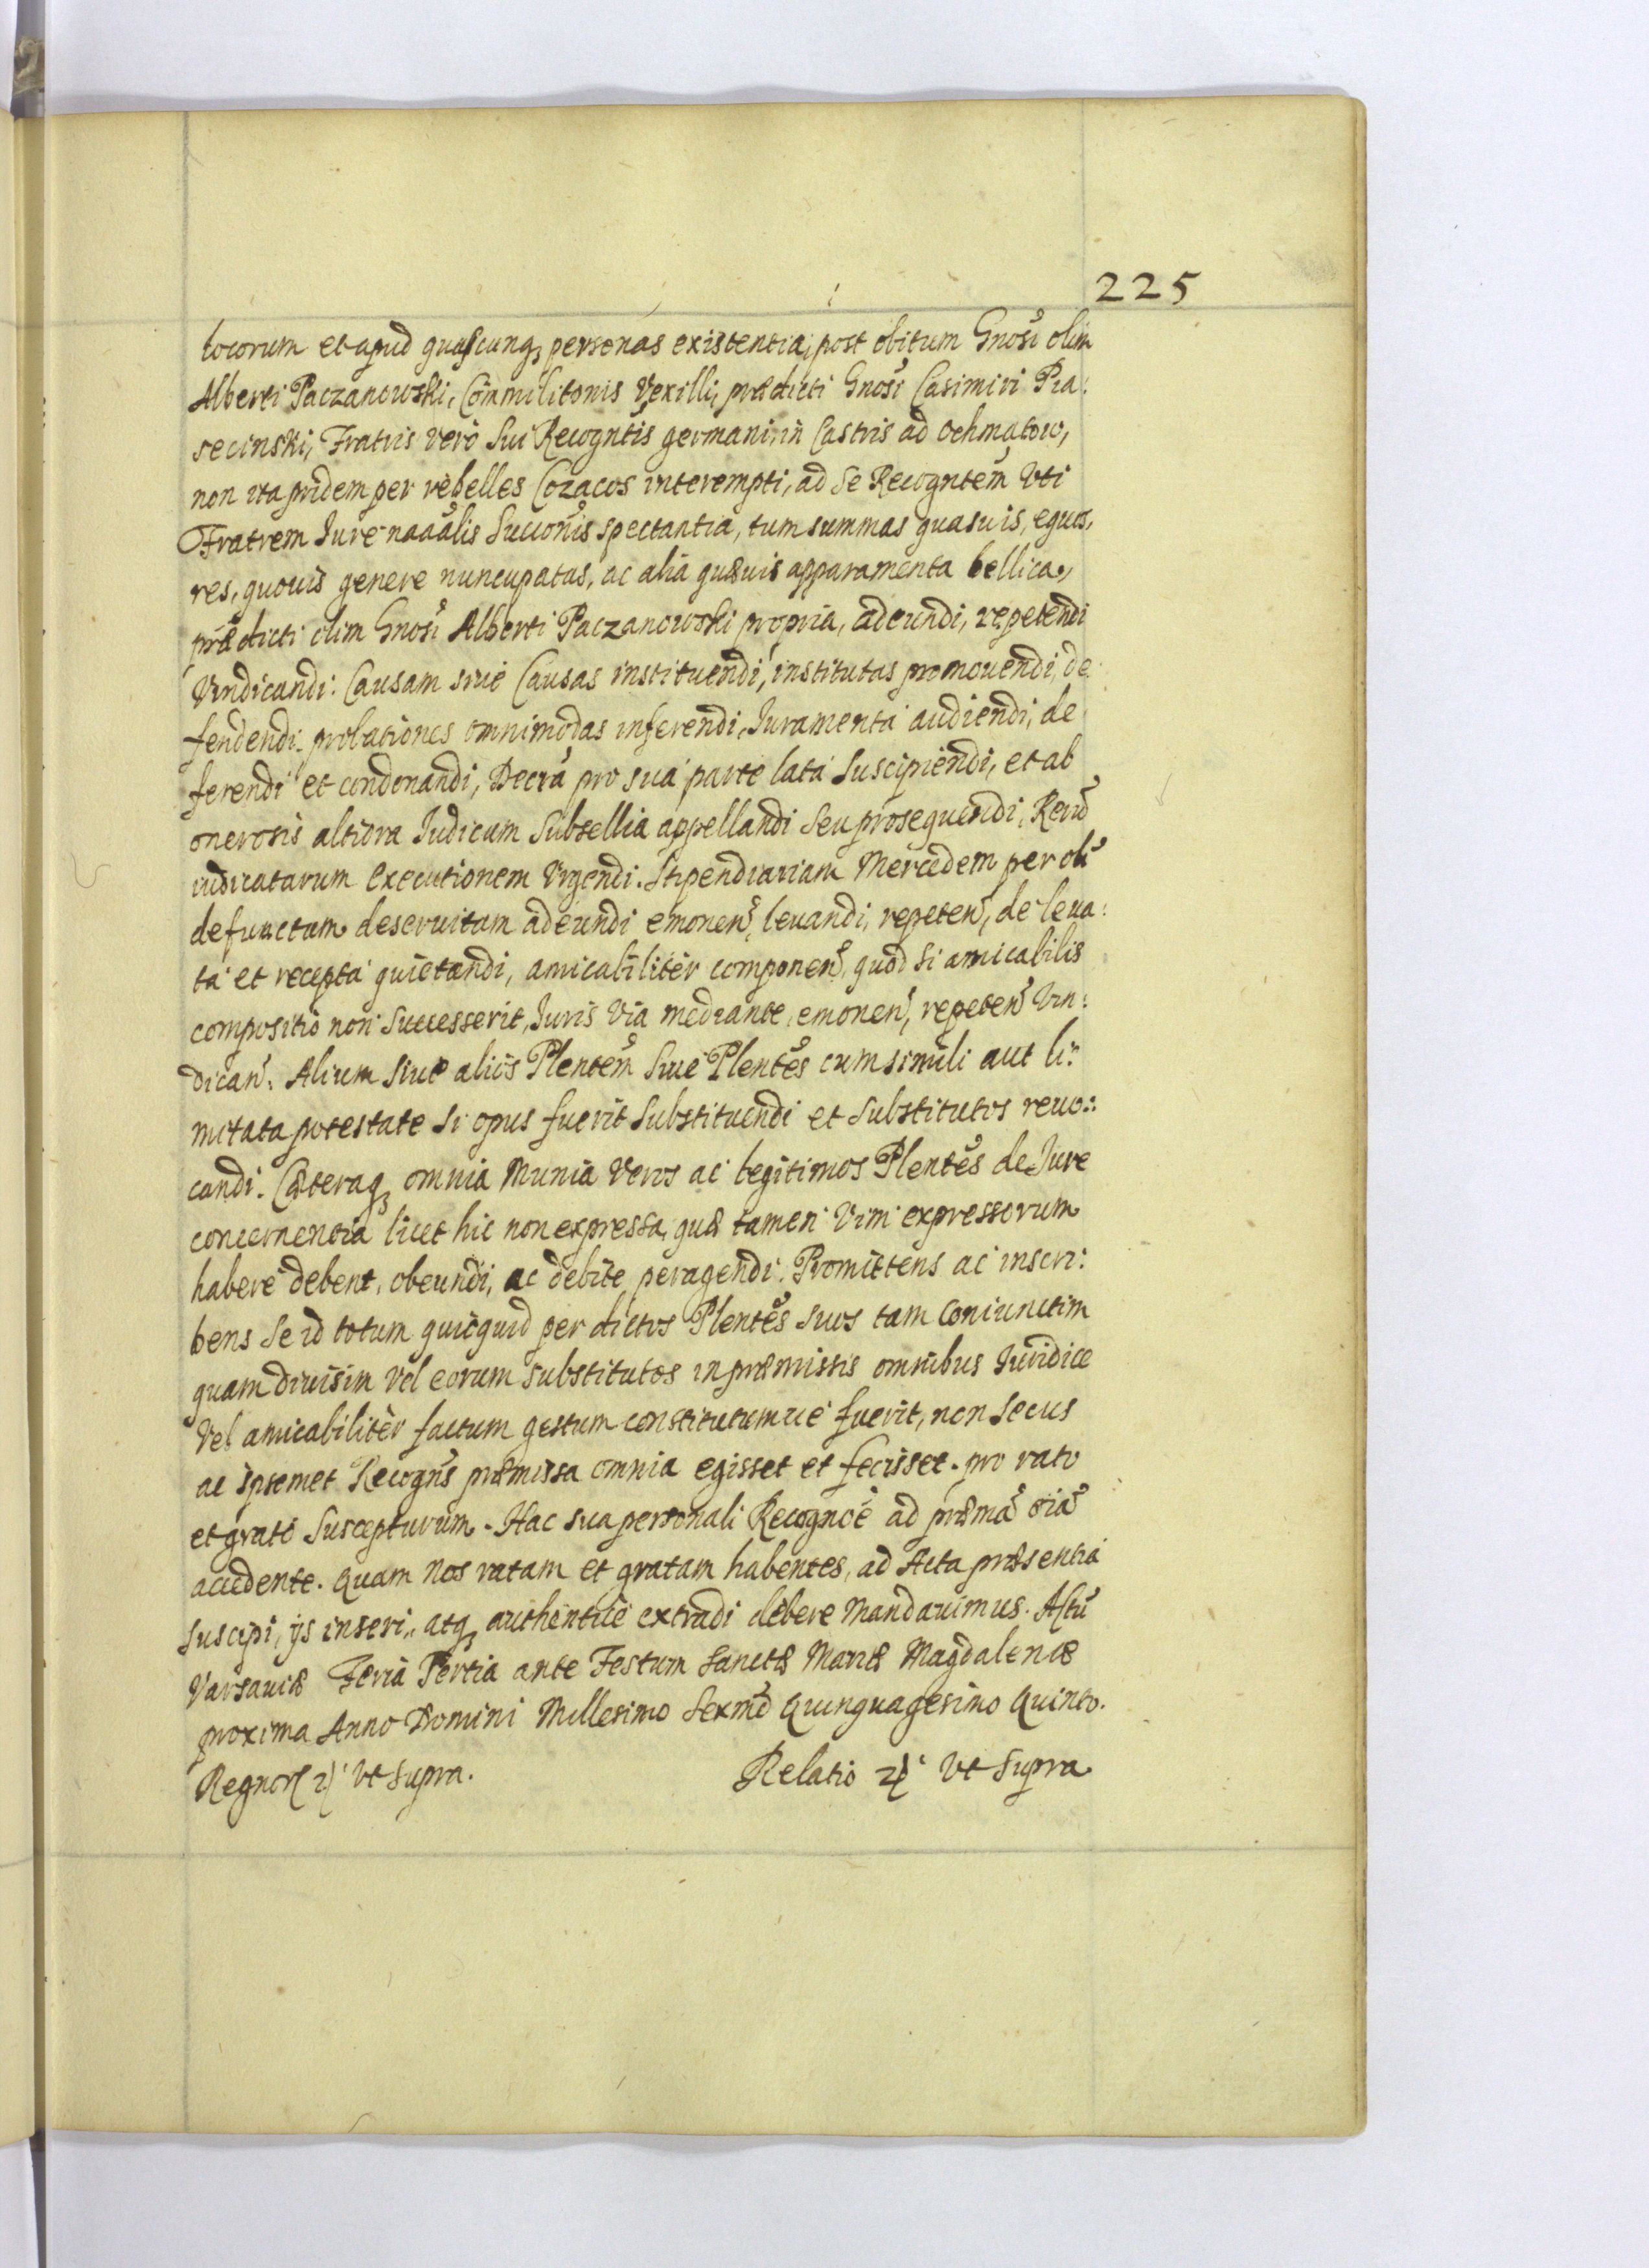 225
locorum et apud quascunq; personas existentia, post obitum Gnosi olim
Alberti Paczanowski, Commilitonis Vexilli, prædicti Gnosi Casimiri Pia:
secinski, Fratris verò sui Recogntis germani, in Castris ad Ochmatow,
non ita pridem per rèbelles Cozacos interempti, ad se Recogntem Vti
Fratrem Iure naâlis Succonis spectantia, tum summas quasuis, equos,
res, quouis genere nuncupatas, ac alia quæuis apparamenta bellica,
prædicti olim Gnosi Alberti Paczanowski propria, adeundi, repetendi
Vindicandi: Causam siue Causas instituendi, institutas promouendi, de
fendendi. probationes omnimodas inferendi, Iuramenta audiendi, de
ferendi et condonandi, Decra pro sua parte lata suscipiendi, et ab
onerosis altiora Iudicum Subsellia appellandi seu prosequendi, Reru
iudicatarum Executionem Vrgendi. Stipendiariam Mercedem per oli
defunctum deseruitam adeundi emonen, leuandi, repeten, de leua:
ta et recepta quietandi, amicabiliter componen, quod si amicabilis
compositio non Successerit, Iuris Via mediante, emonen, repeten Vin:
dican. Alium siue alios Plentem siue Plentes cum simili aut li:
mitata potestate si opus fuerit Substituendi et Substitutos reuo:
candi. Cæteraq; omnia Munia Veros ac legitimos Plentes de Iure
concernentia licet hic non expressa, quæ tamen Vim expressorum
habere debent, obeundi, ac debite peragendi. Promittens ac inscri:
bens se id totum quicquid per dictos Plentes suos tam Coniunctim
quam diuisim vel eorum substitutos in præmissis omnibus Iuridice
Vel amicabilitèr factum gestum constitutumue fuerit, non secus
ac ipsemet Recogns præmissa omnia egisset et fecisset. pro rato
et grato Suscepturum. Hac sua personali Recognoe ad præma oia
accedente. Quam Nos ratam et gratam habentes, ad Acta præsentia
suscipi, ijs inseri, atq; authentice extradi debere Mandauimus. Actu
Varsauiæ Feria Tertia ante Festum Sanctæ Mariæ Magdalenæ
proxima Anno Domini Millesimo Sexmo Quinquagesimo Quinto.
Regnor Vt supra. Relatio Vt supra